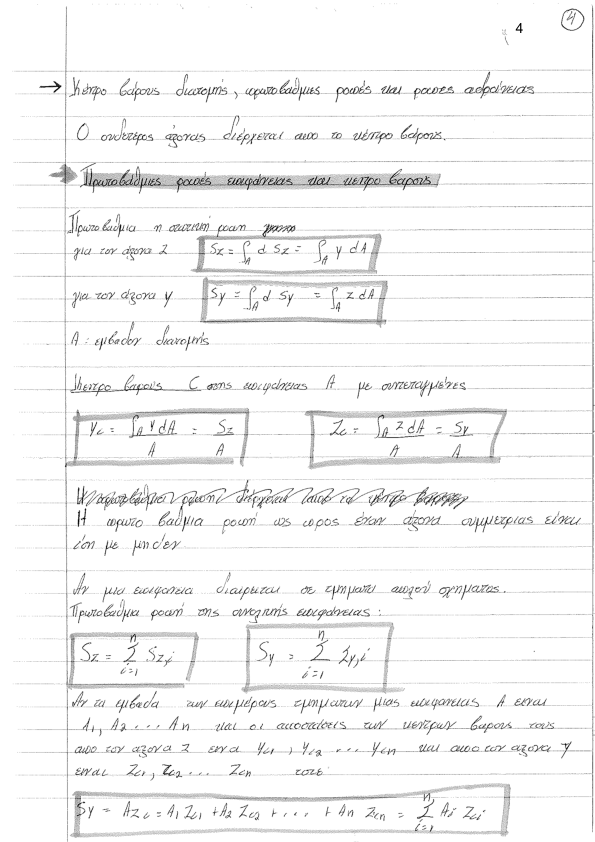 4
4
→ Κέντρο βάρους διατομής, πρωτοβάθμιες ροπές και ροπές αδράνειας
Ο ουδέτερος άξονας διέρχεται απο το κέντρο βάρους.
→ Πρωτοβάθμιες ροπές επιφάνειας και κεντρο βαρους
Πρωτοβάθμια η στατική ροπή
για τον άξονα z Sz = ∫A d Sz = ∫A y dA
για τον άξονα y Sy = ∫A d Sy = ∫A z dA
A : εμβαδον διατομής
Κεντρο βαρους C στης επιφάνειας A με συντεταγμένες
Yc = ∫A y dA / A = Sz / A Zc = ∫A z dA / A = Sy / A
Η πρωτοβάθμια ροπή διέρχεται από το κέντρο
Η πρωτο βαθμια ροπή ως προς έναν άξονα συμμετρίας είναι
ίση με μηδέν
Αν μια επιφανεια διαιρειται σε τμηματα απλού σχηματος.
Πρωτοβαθμια ροπή της συνολικής επιφάνειας :
Sz = Σ i=1 n Sz,i Sy = Σ i=1 n Sy,i
Αν τα εμβαδα των επιμέρους τμηματων μιας επιφανειας A ειναι
A1, A2 ... An και οι αποστάσεις των κεντρων βαρους τους
απο τον άξονα z ειναι Yc1, Yc2 ... Ycn και απο τον αξονα y
ειναι Zc1, Zc2 ... Zcn τοτε
Sy = AZc = A1 Zc1 + A2 Zc2 + ... + An Zcn = Σ i=1 n Ai Zci